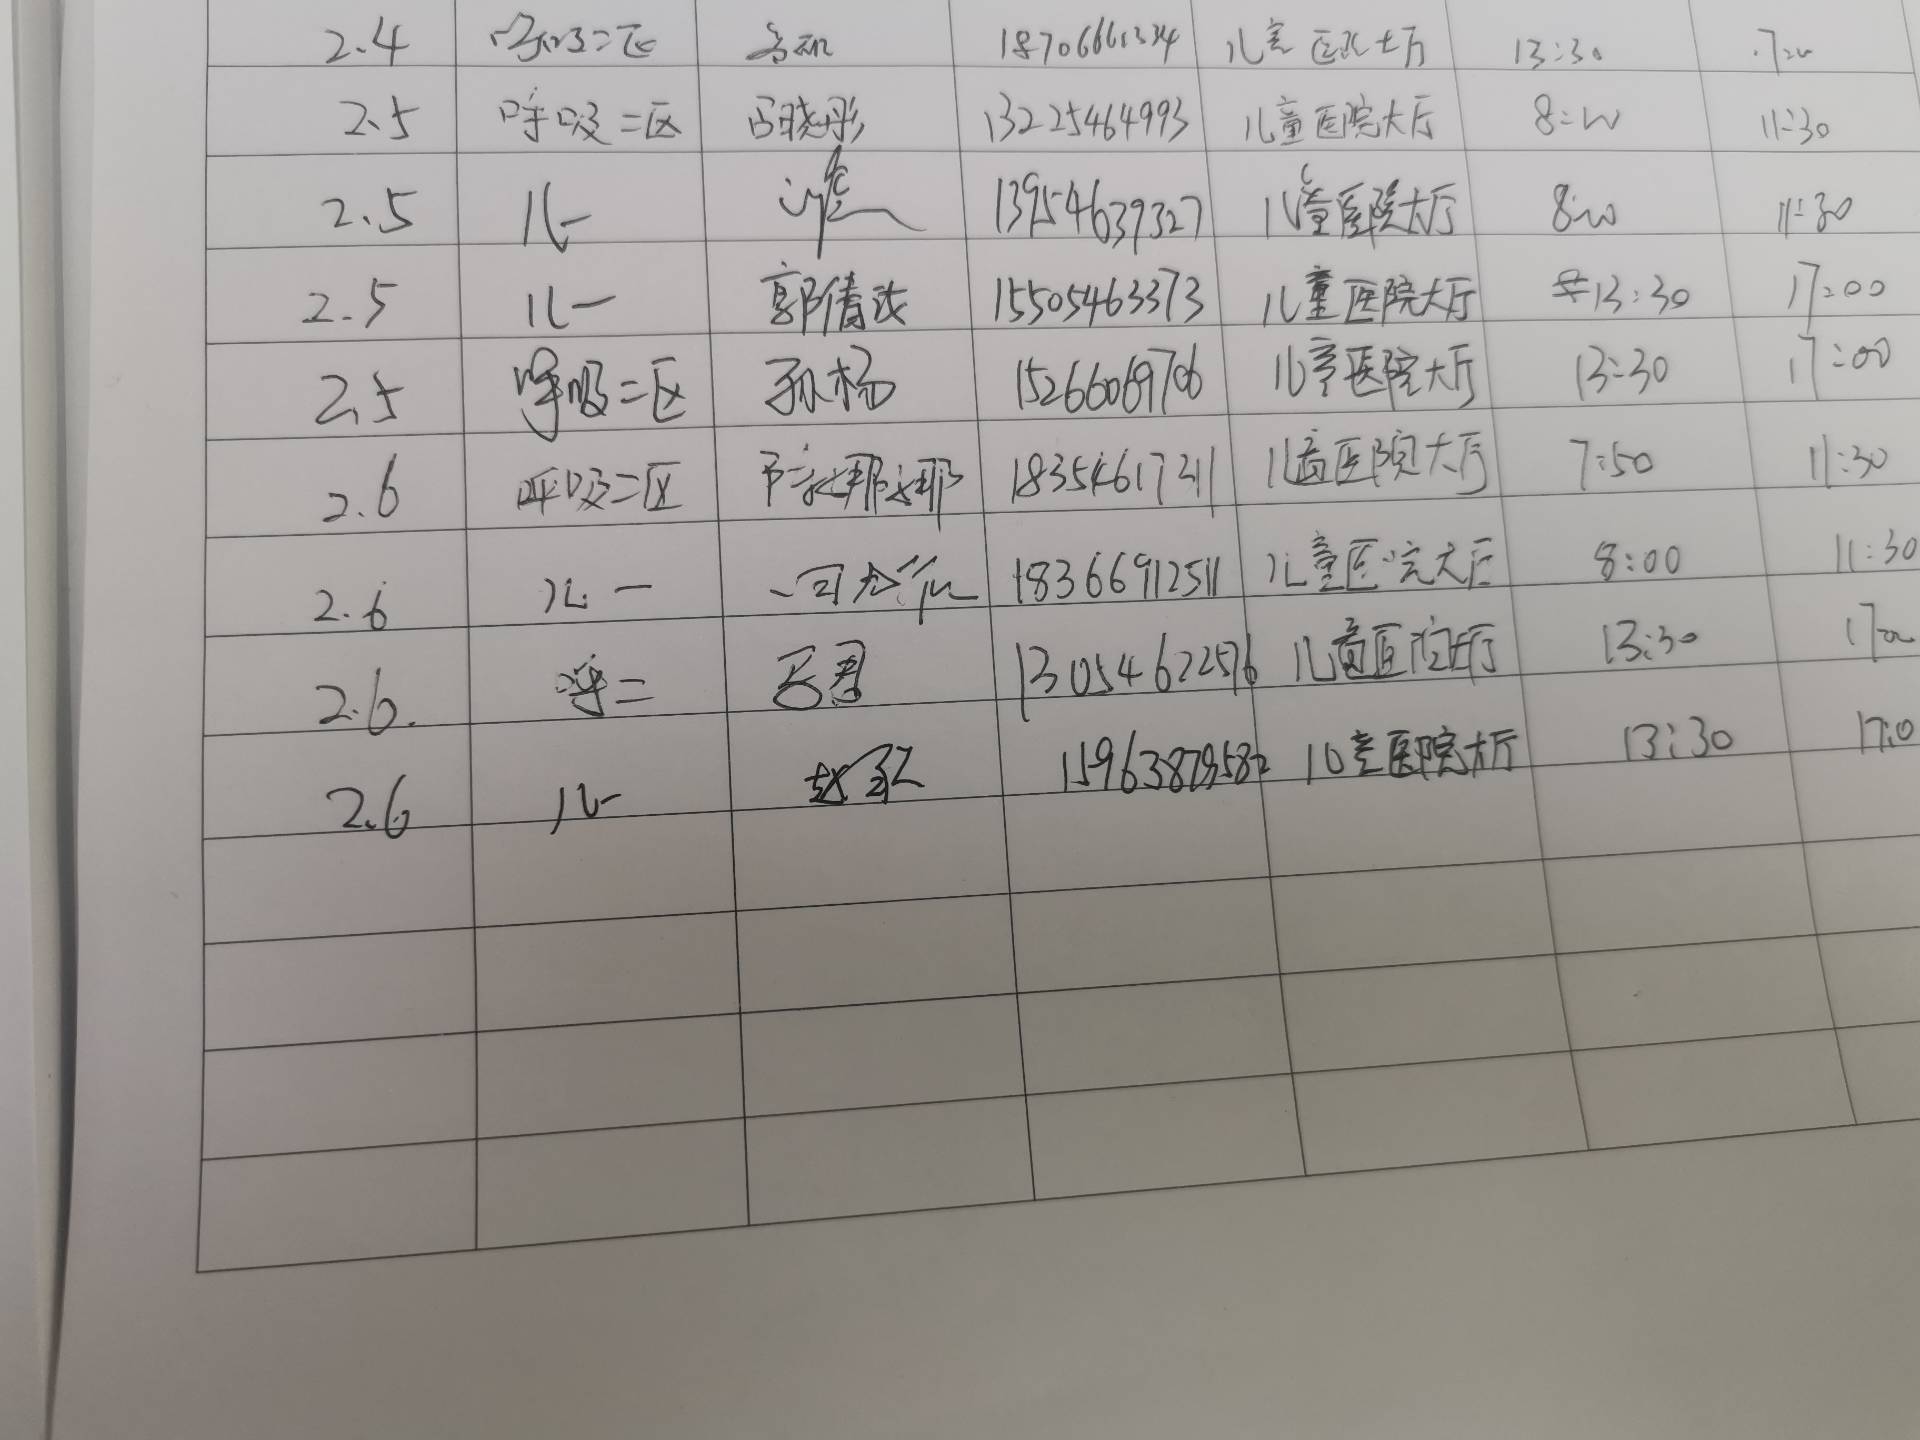 2.4 呼吸二区 儿童医院大厅 13:30 17:00
2.5 呼吸二区 吕晓彤 13225464993 儿童医院大厅 8:00 11:30
2.5 儿一 13954639327 儿童医院大厅 8:00 11:30
2.5 儿一 郭倩 15505463373 儿童医院大厅 13:30 17:00
2.5 呼吸二区 孙杨 15266069706 儿童医院大厅 13:30 17:00
2.6 呼吸二区 18354617211 儿童医院大厅 7:50 11:30
2.6 儿一 18366912511 儿童医院大厅 8:00 11:30
2.6. 呼二 13054622576 儿童医院大厅 13:30 17:00
2.6 儿一 儿童医院大厅 13:30 17:0